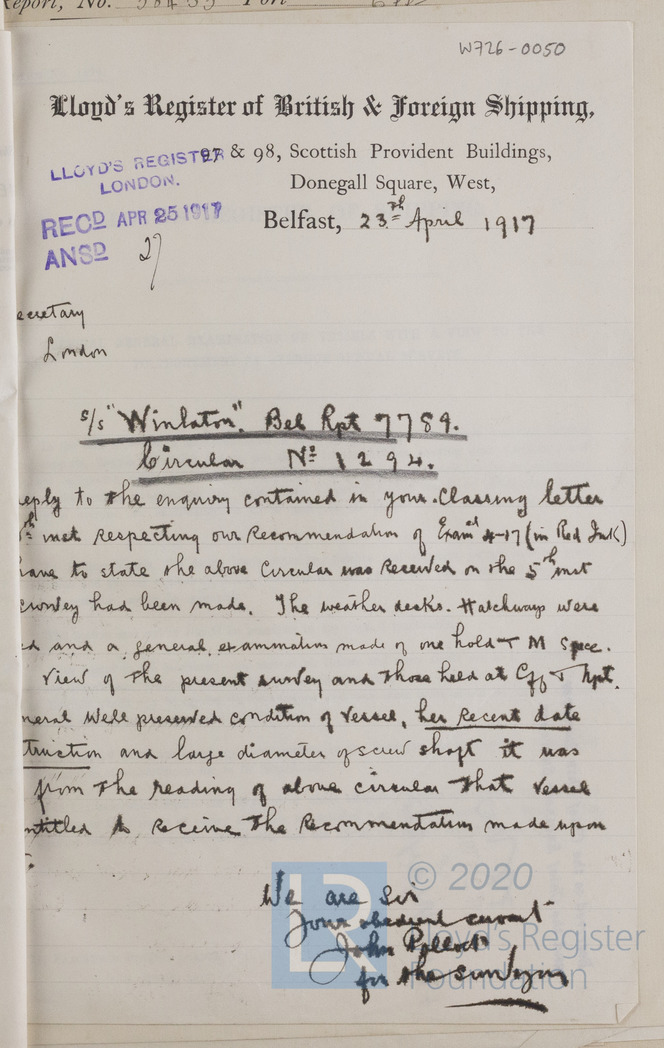 Report, No. Port
W726-0050
Lloyd's Register of British & Foreign Shipping,
97 & 98, Scottish Provident Buildings,
LLOYD'S REGISTER
LONDON.
Donegall Square, West,
RECD APR 25 1917
Belfast, 23rd April 1917
ANSD 27
ecretary
London
s/s "Winlaton". Bel Rpt 7789.
Circular No 1294.
eply to the enquiry contained in your Classing letter
th inst respecting our Recommendation of Examd 4-17 (in Red Ink)
have to state the above Circular was Received on the 5th inst
survey had been made. The weather decks. Hatchways were
ed and a general examination made of one hold + M Space.
view of the present survey and those held at Cff + Npt.
neral well preserved condition of vessel, her recent date
truction and large diameter of screw shaft it was
from the reading of above circular that vessel
ntitled to receive the Recommendation made upon
We are Sir
Your obedient servant
John Pollock
for the Surveyors
LR
© 2020
Lloyd's Register
Foundation